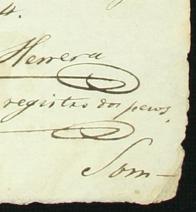 4.
Herrera
registro dos pesos,
Som-